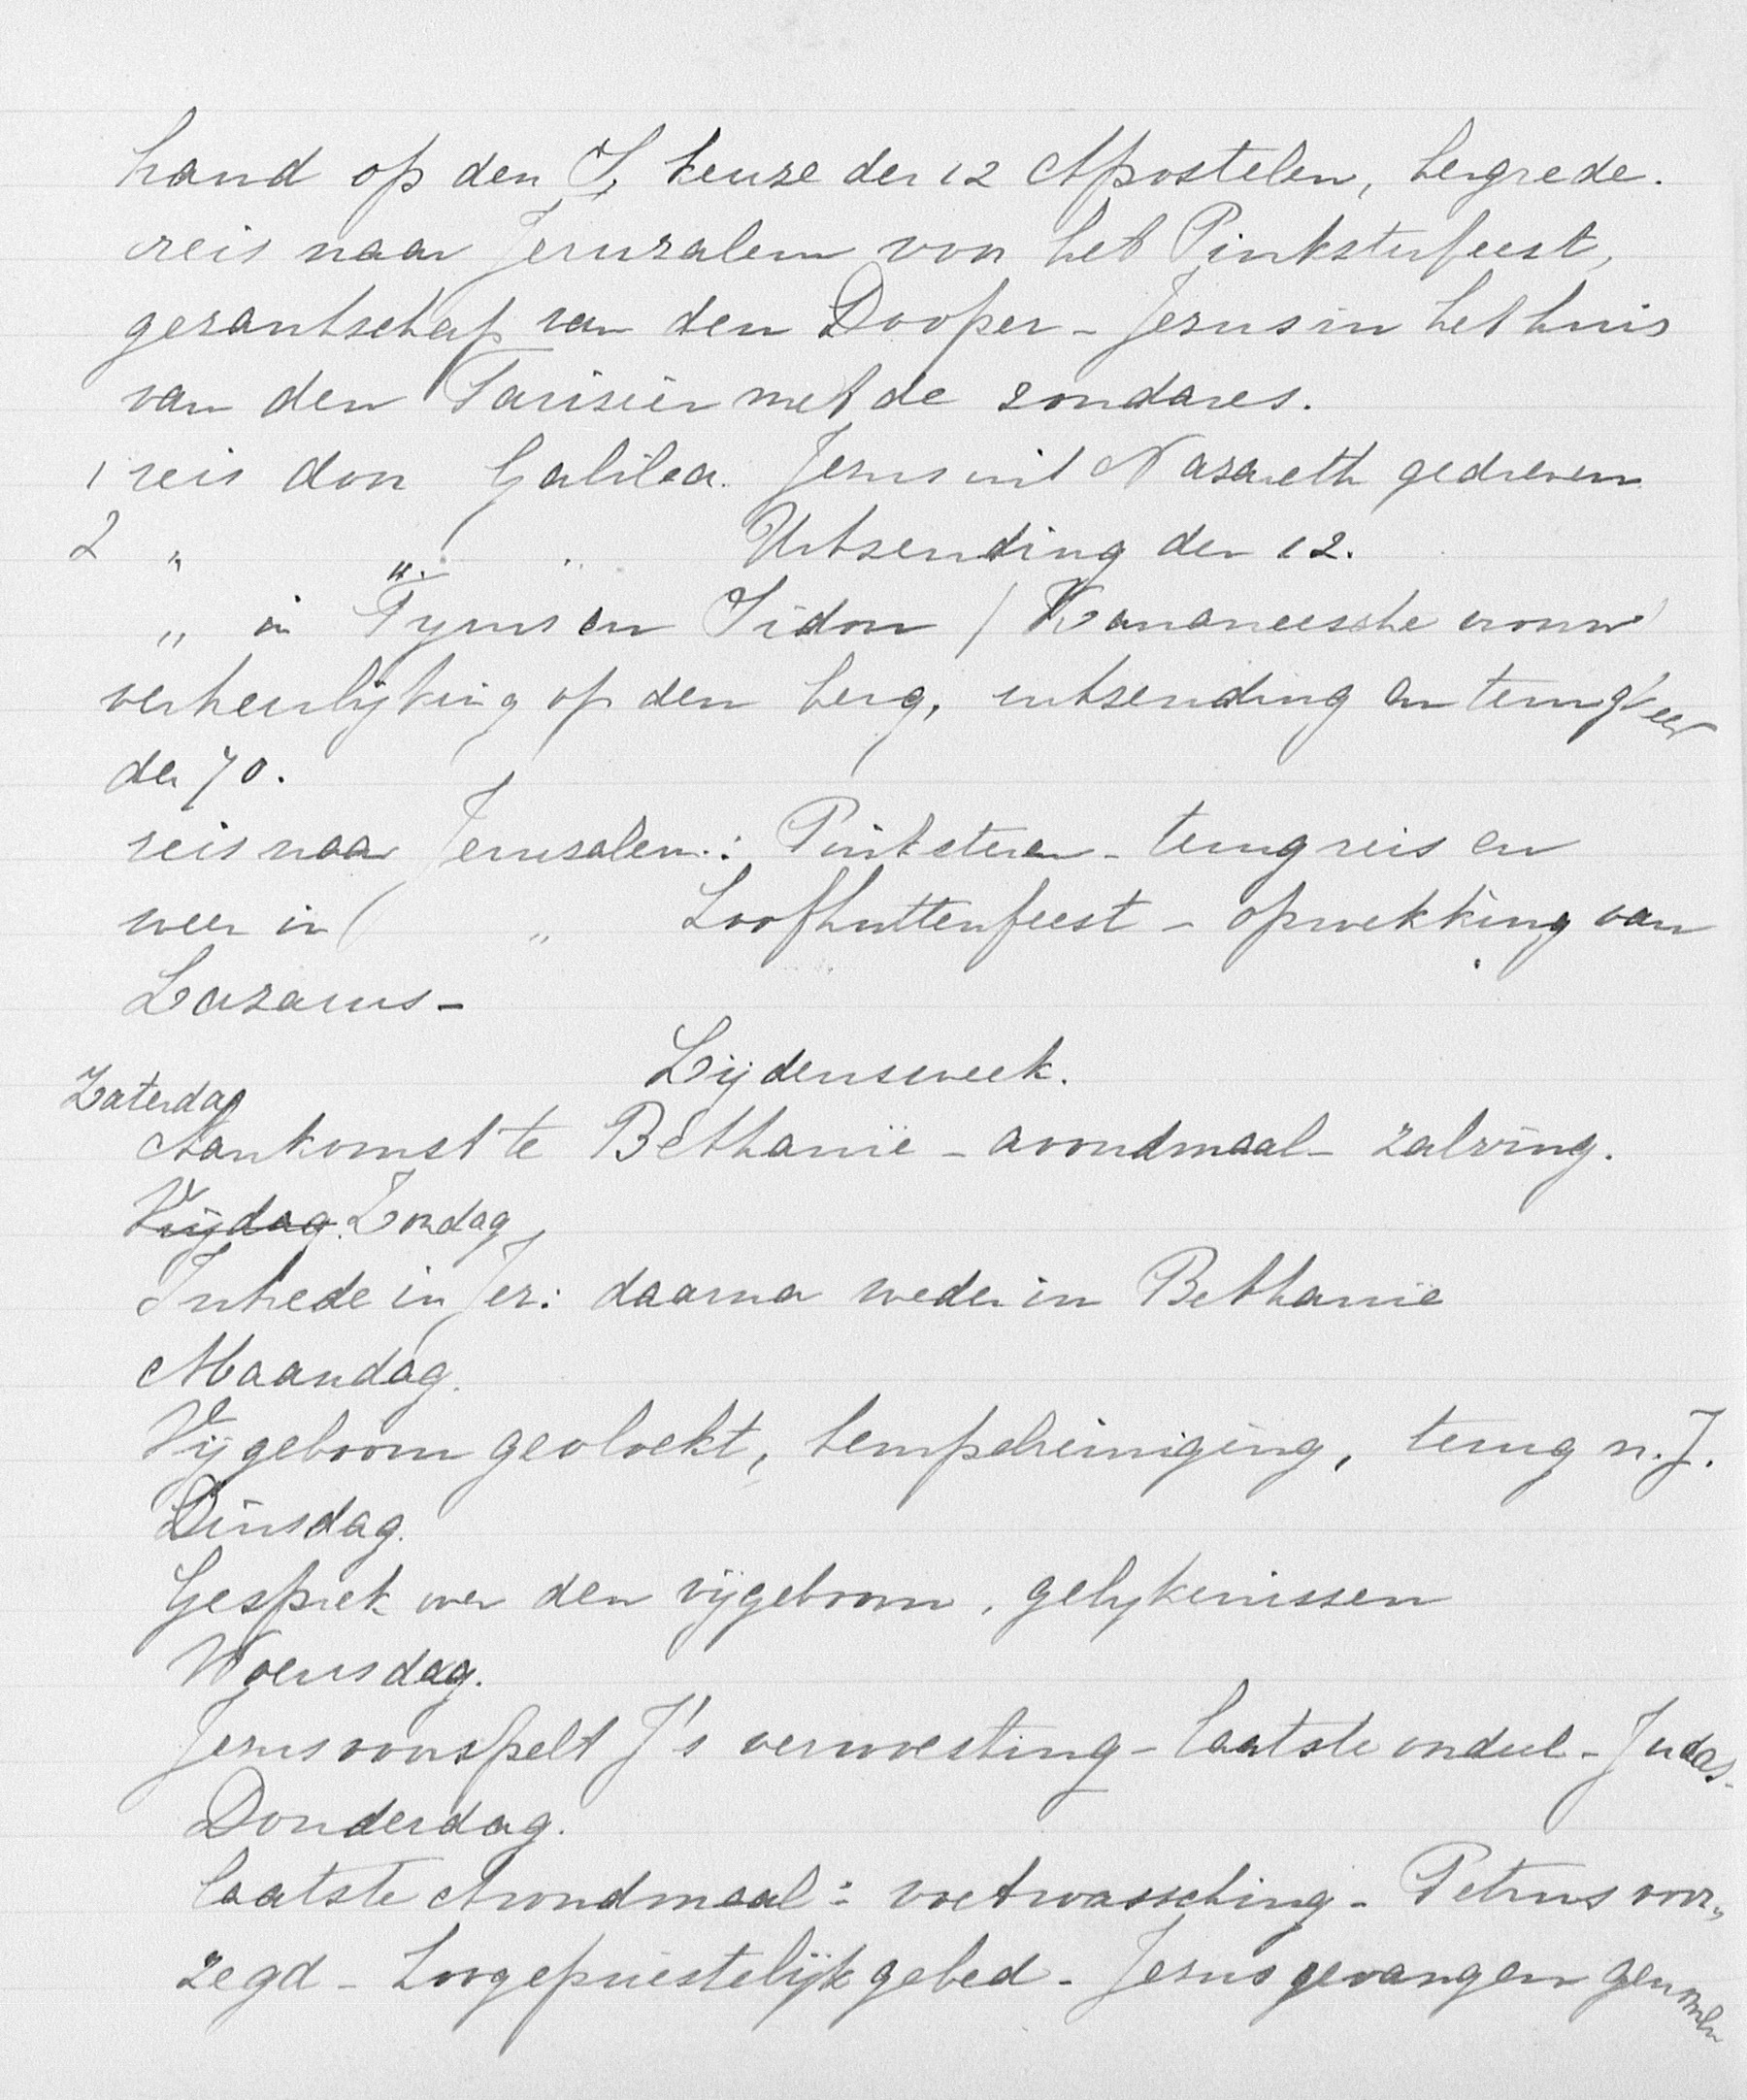 hand op den S, keuze der 12 Apostelen, bergrede.
reis naar Jeruzalem voor het Pinksterfeest,
gezantschap van den Dooper - Jezus in het huis
van den Farizeër met de zondares.
1 reis door Galilea. Jezus uit Nazareth gedreven
2 " " " Uitzending der 12.
" in Tyrus en Sidon / Kananeesche vrouw
verheerlijking op den berg, uitzending en terugkeer
der 70.
reis naar Jeruzalem: Pinksteren - terugreis en
weer in " Loofhuttenfeest - opwekking van
Lazarus -
Lijdensweek.
Zaterdag
Aankomst te Bethanië - avondmaal - zalving.
Vrijdag. Zondag
Intrede in Jer: daarna weder in Bethanië
Maandag.
Vijgeboom gevloekt, tempelreiniging, terug n. J.
Dinsdag.
Gesprek over den vijgeboom, gelijkenissen
Woensdag.
Jezus voorspelt J's verwoesting - laatste oordeel - Judas -
Donderdag.
laatste Avondmaal: voetwassching - Petrus voor„
zegd - hoogepriestelijk gebed - Jezus gevangen genomen